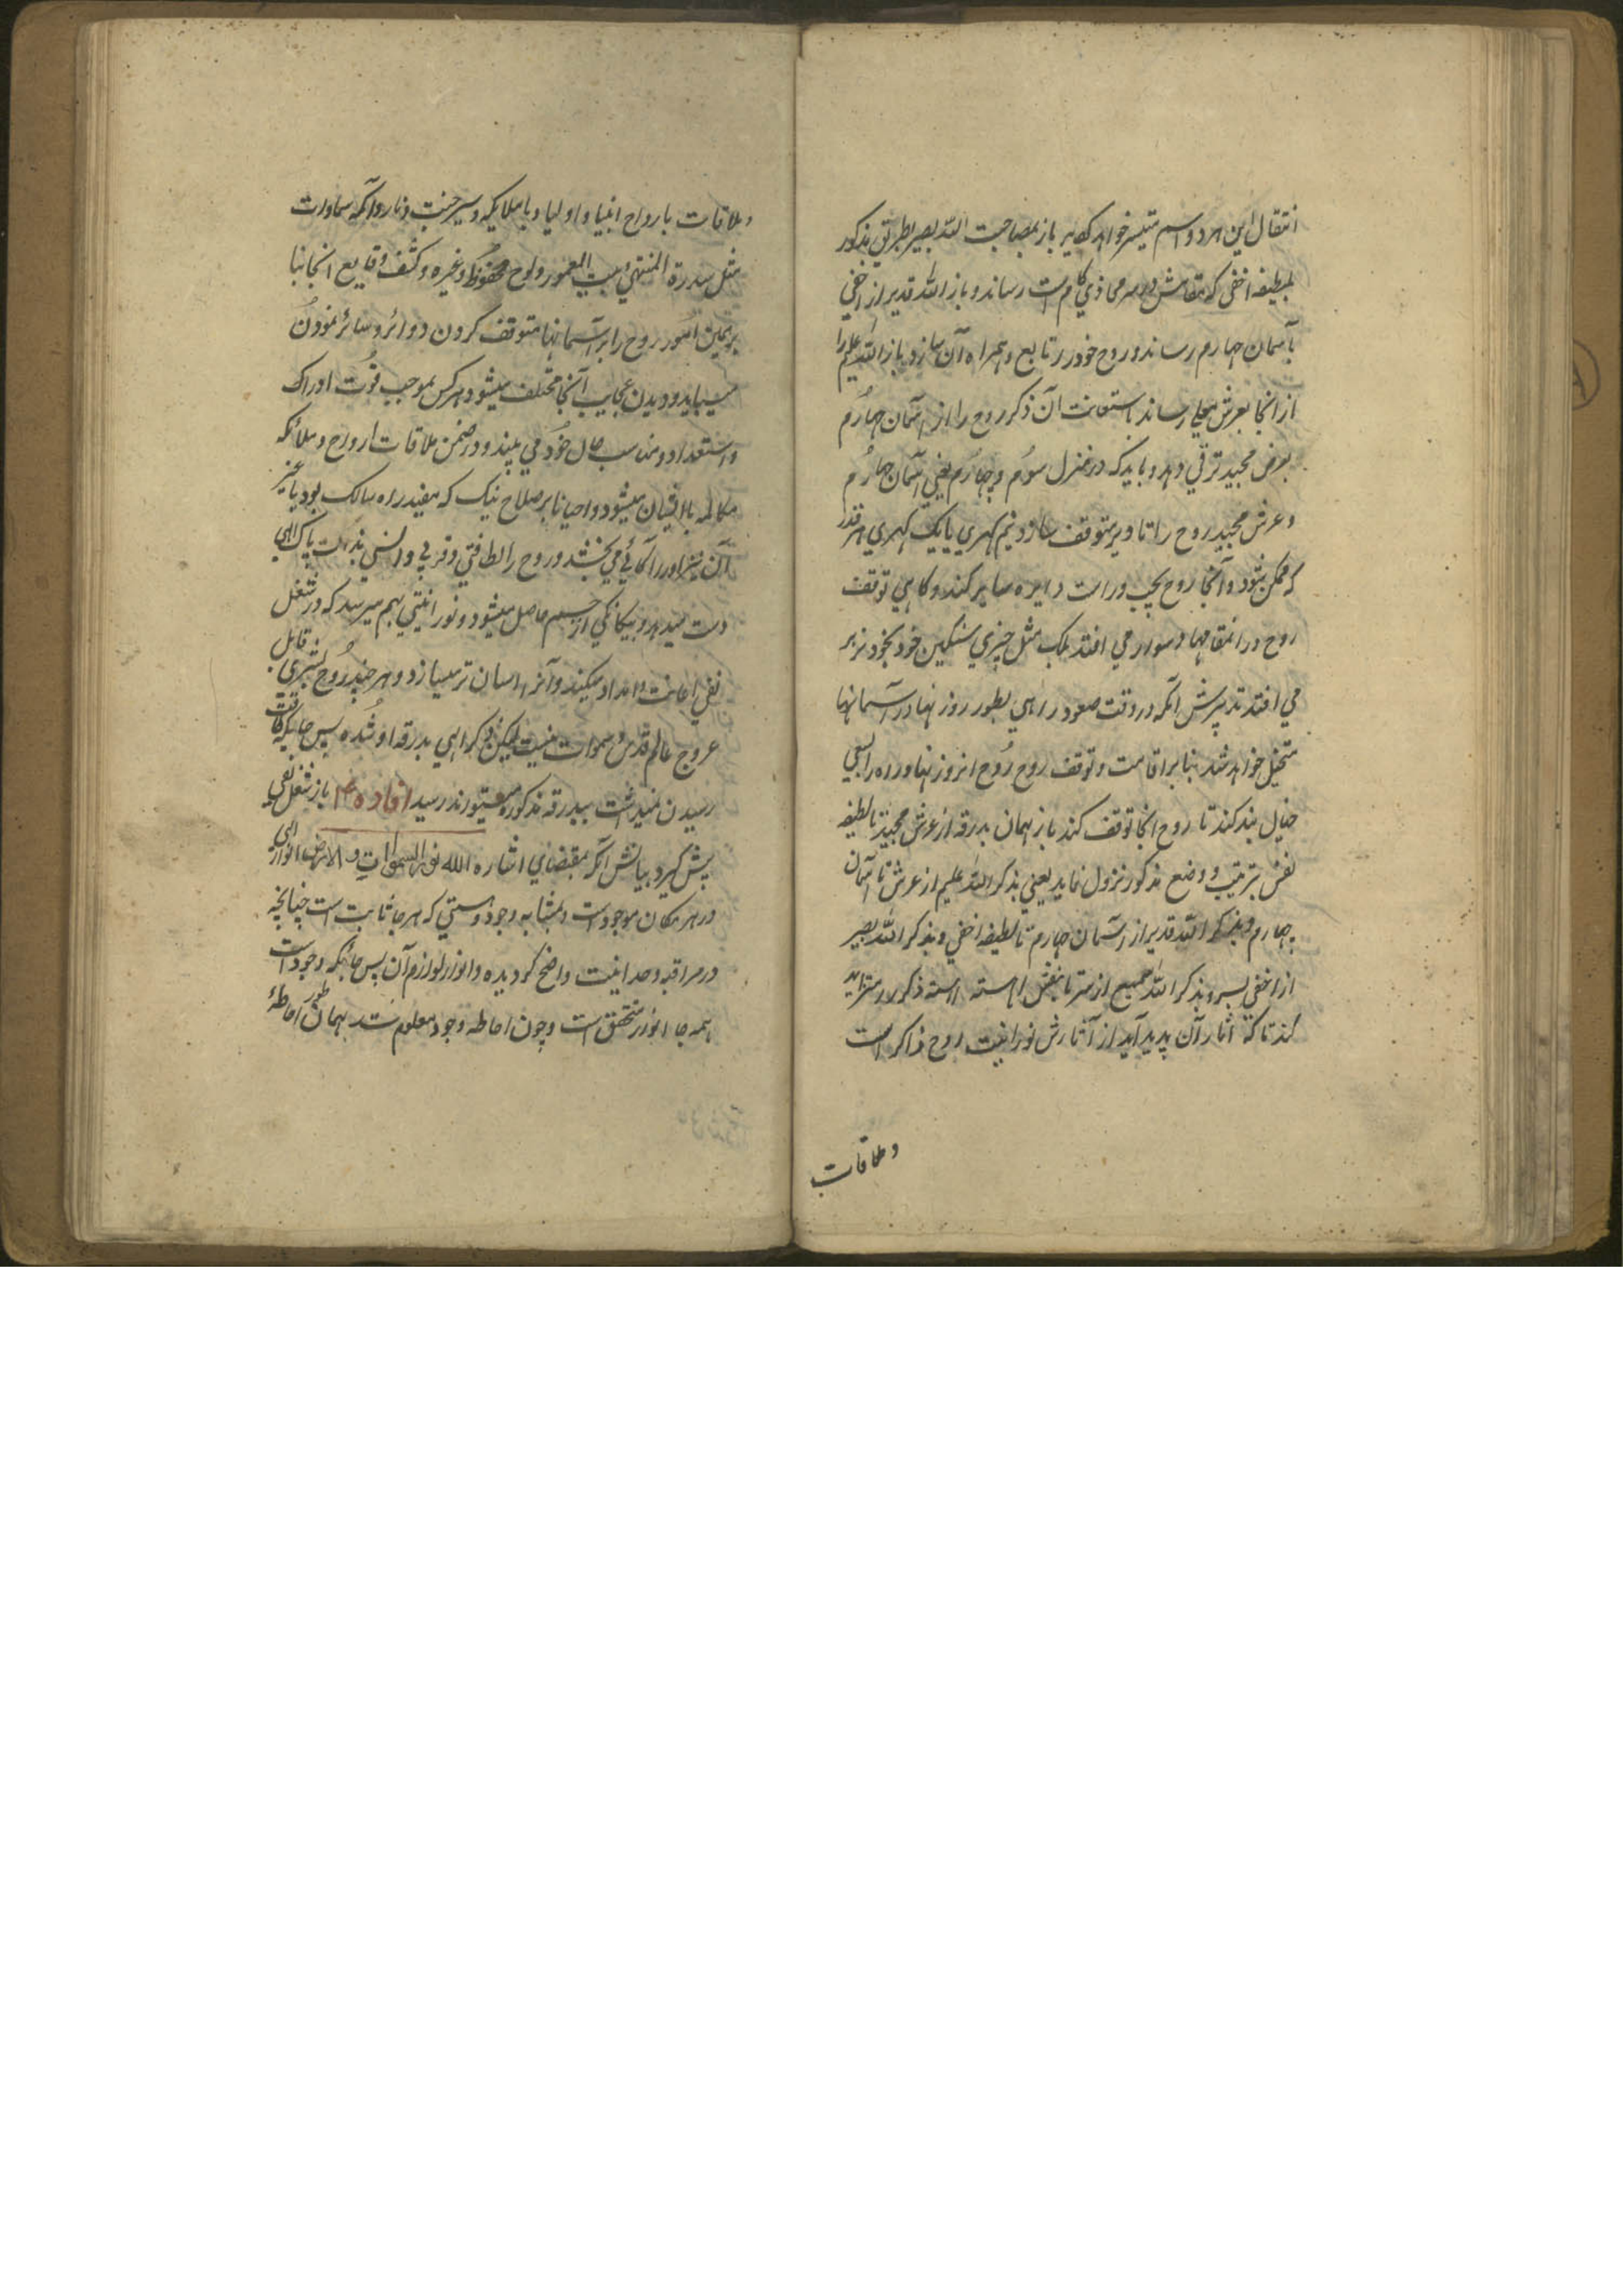 انتقال این هر دو اسم متیسر خواهد گردید باز بمصاحبت الله بصیر بطریق مذکور
بلطیفه اخفی که مقامش در سر محاذی کام است رساند و باز الله قدیر از اخفی
بآسمان چهارم رساند و روح خود را تابع و همراه آن سازد و باز الله علیم را
از انجا بعرش معلی رساند باستعانت آن ذکر روح را از آسمان چهارم
بعرش مجید ترقی دهد و باید که در منزل سوم و چهارم یعنی آسمان چهارم
و عرش مجید روح را تا دیر متوقف سازد نیم گهری یا یک گهری هر قدر
که ممکن بشود و آنجا روح بچپ و راست دایره سایر کند و گاهی توقف
روح در انمقامها دشوار می افتد بلکه مثل چیزی سنگین خود بخود بزیر
می افتد تدبیرش آنکه در وقت صعود راهی بطور روزنها در آسمانها
متخیل خواهد شد بنابر اقامت و توقف روح آنروزنها و راه را بسعی
خیال بند کند تا روح آنجا توقف کند باز بهمان بدرقه از عرش مجید تا لطیفه
نفس بترتیب و وضع مذکور نزول نماید یعنی بذکر الله علیم از عرش تا آسمان
چهارم و بذکر الله قدیر از آسمان چهارم تا لطیفه اخفی و بذکر الله بصیر
از اخفی بسر و بذکر الله سمیع از سر تا بنفس آهسته آهسته ذکر را متزاید
کند تا که آثار آن پدید آید از آثارش نورانیت روح ذاکر است
و ملاقات
و ملاقات بارواح انبیا و اولیا و با ملایکه و سیر جنت و نار و امکنه سماوات
مثل سدرة المنتهی و بیت المعمور و لوح محفوظ و غیره و کشف وقایع آنجا بنا
بر همین امور روح را بر آسمانها متوقف کردن و دوائر و سائر نمودن
میباید و دیدن عجایب آنجا مختلف میشود هر کس بموجب قوت ادراک
و استعداد و مناسب حال خود می بیند و در ضمن ملاقات ارواح و ملائکه
مکالمه با ایشان میشود و احیانا بر صلاح نیک که مفید راه سالک بود یا غیر
آن او را آگاهی می بخشد و روح را لطافتی و قربی و انسی بذات پاک الهی
دست میدهد و بیگانگی از جسم حاصل میشود و نورانیتی بهم میرسد که در شغل
نفی اعانت و امداد میکند و آنرا آسان تر میسازد و هر چند روح بشری قابل
عروج عالم قدس و سموات نیست لیکن ذکر الهی بدرقه او شده پس جائیکه طاقت
رسیدن نمیداشت ببدرقه مذکوره میتواند رسید افاده باز شغل نفی
پیش گیرد بیانش آنکه بمقتضای اشاره الله نور السموات والارض انوار الهی
در هر مکان موجود است و بمثابه وجود و هستی که هر جا ثابت است چنانچه
در مراقبه وحدانیت واضح گردیده و انوار لوازم آن پس جائیکه وجود است
همه جا انوار متحقق است و چون احاطه وجود معلوم شد بهمان طور احاطهٔ